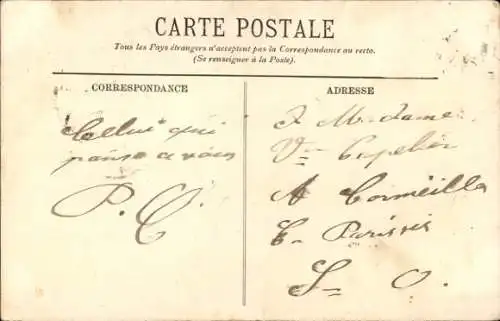 CARTE POSTALE
Tous les Pays étrangers n'acceptent pas la Correspondance au recto.
(Se renseigner à la Poste).
CORRESPONDANCE
ADRESSE
Celui qui
pense a vous
P. C.
Madame
Vve
A Cormeilles
En Parisis
S= O.